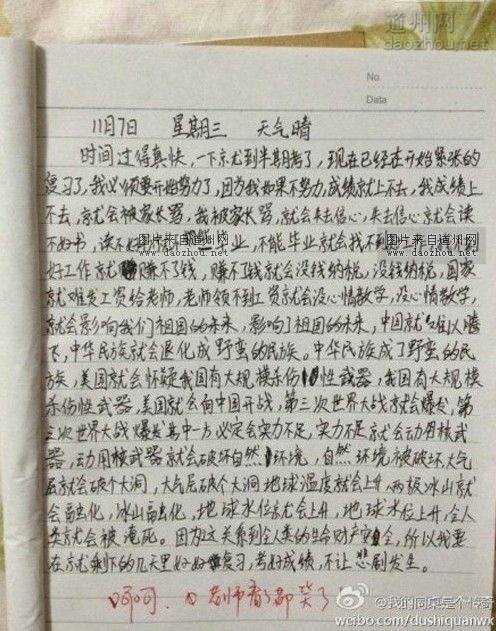 通州网
daozhou.net
No.
Data
11月7日 星期三 天气晴
时间过得真快,一下就到半期考了,现在已经在开始紧张的
复习了,我必须要开始努力了,因为我如果不努力,成绩就上不去,我成绩上
不去,就会被家长骂,我被家长骂,就会失去信心,失去信心就会读
不好书,读不好书就 业,不能毕业就会找不到
图片来自道州网 图片来自道州网
www.daozhou.net www.daozhou.net
好工作就赚不了钱,赚不了钱就会没钱纳税,没钱纳税,国家
就难发工资给老师,老师领不到工资就会没心情教学,没心情教学,
就会影响我们祖国的未来,影响了祖国的未来,中国就难以腾
飞,中华民族就会退化成野蛮的民族。中华民族成了野蛮的民
族,美国就会怀疑我国有大规模杀伤性武器,我国有大规模
杀伤性武器,美国就会向中国开战,第三次世界大战就会爆发,第
三次世界大战爆发其中一方必定会实力不足,实力不足就会动用核武
器,动用核武器就会破坏自然环境,自然环境被破坏,大气
层就会破个大洞,大气层破个大洞地球温度就会上升,两极冰山就
会融化,冰山融化,地球水位就会上升,地球水位上升,全人
类就会被淹死。因为这关系到全人类的生命财产安全,所以我要
在就剩下的几天里好好复习,考好成绩,不让悲剧发生。
呵呵,老师看了都笑了
@我的同桌是个传奇
weibo.com/dushiquanwx